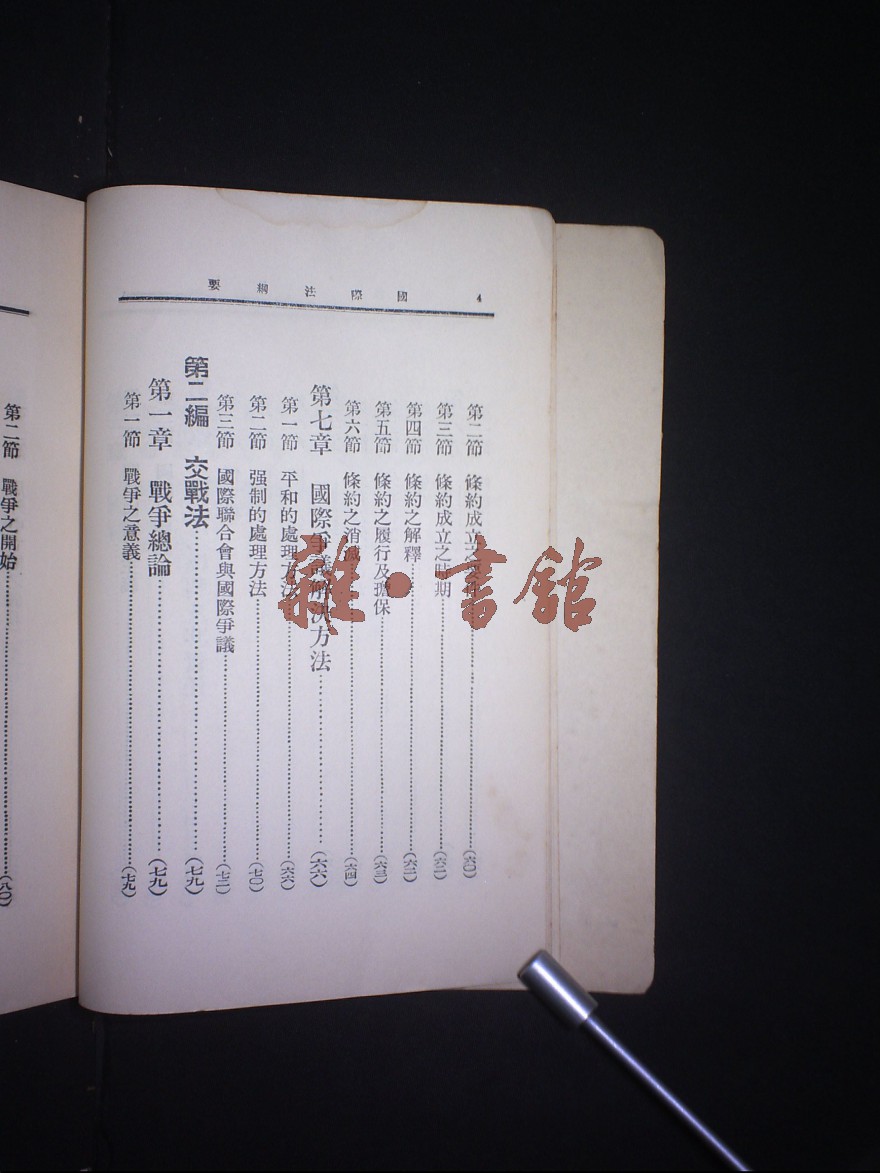 4 國際法綱要
第二節 條約成立之
第三節 條約成立之時期……(六二)
第四節 條約之解釋……(六二)
第五節 條約之履行及擔保……(六三)
第六節 條約之消滅……(六四)
第七章 國際爭議解決方法……(六六)
第一節 平和的處理方法……(六六)
第二節 强制的處理方法……(七〇)
第三節 國際聯合會與國際爭議……(七三)
第二編 交戰法……(七九)
第一章 戰爭總論……(七九)
第一節 戰爭之意義……(七九)
第二節 戰爭之開始……(八〇)
雜·書館